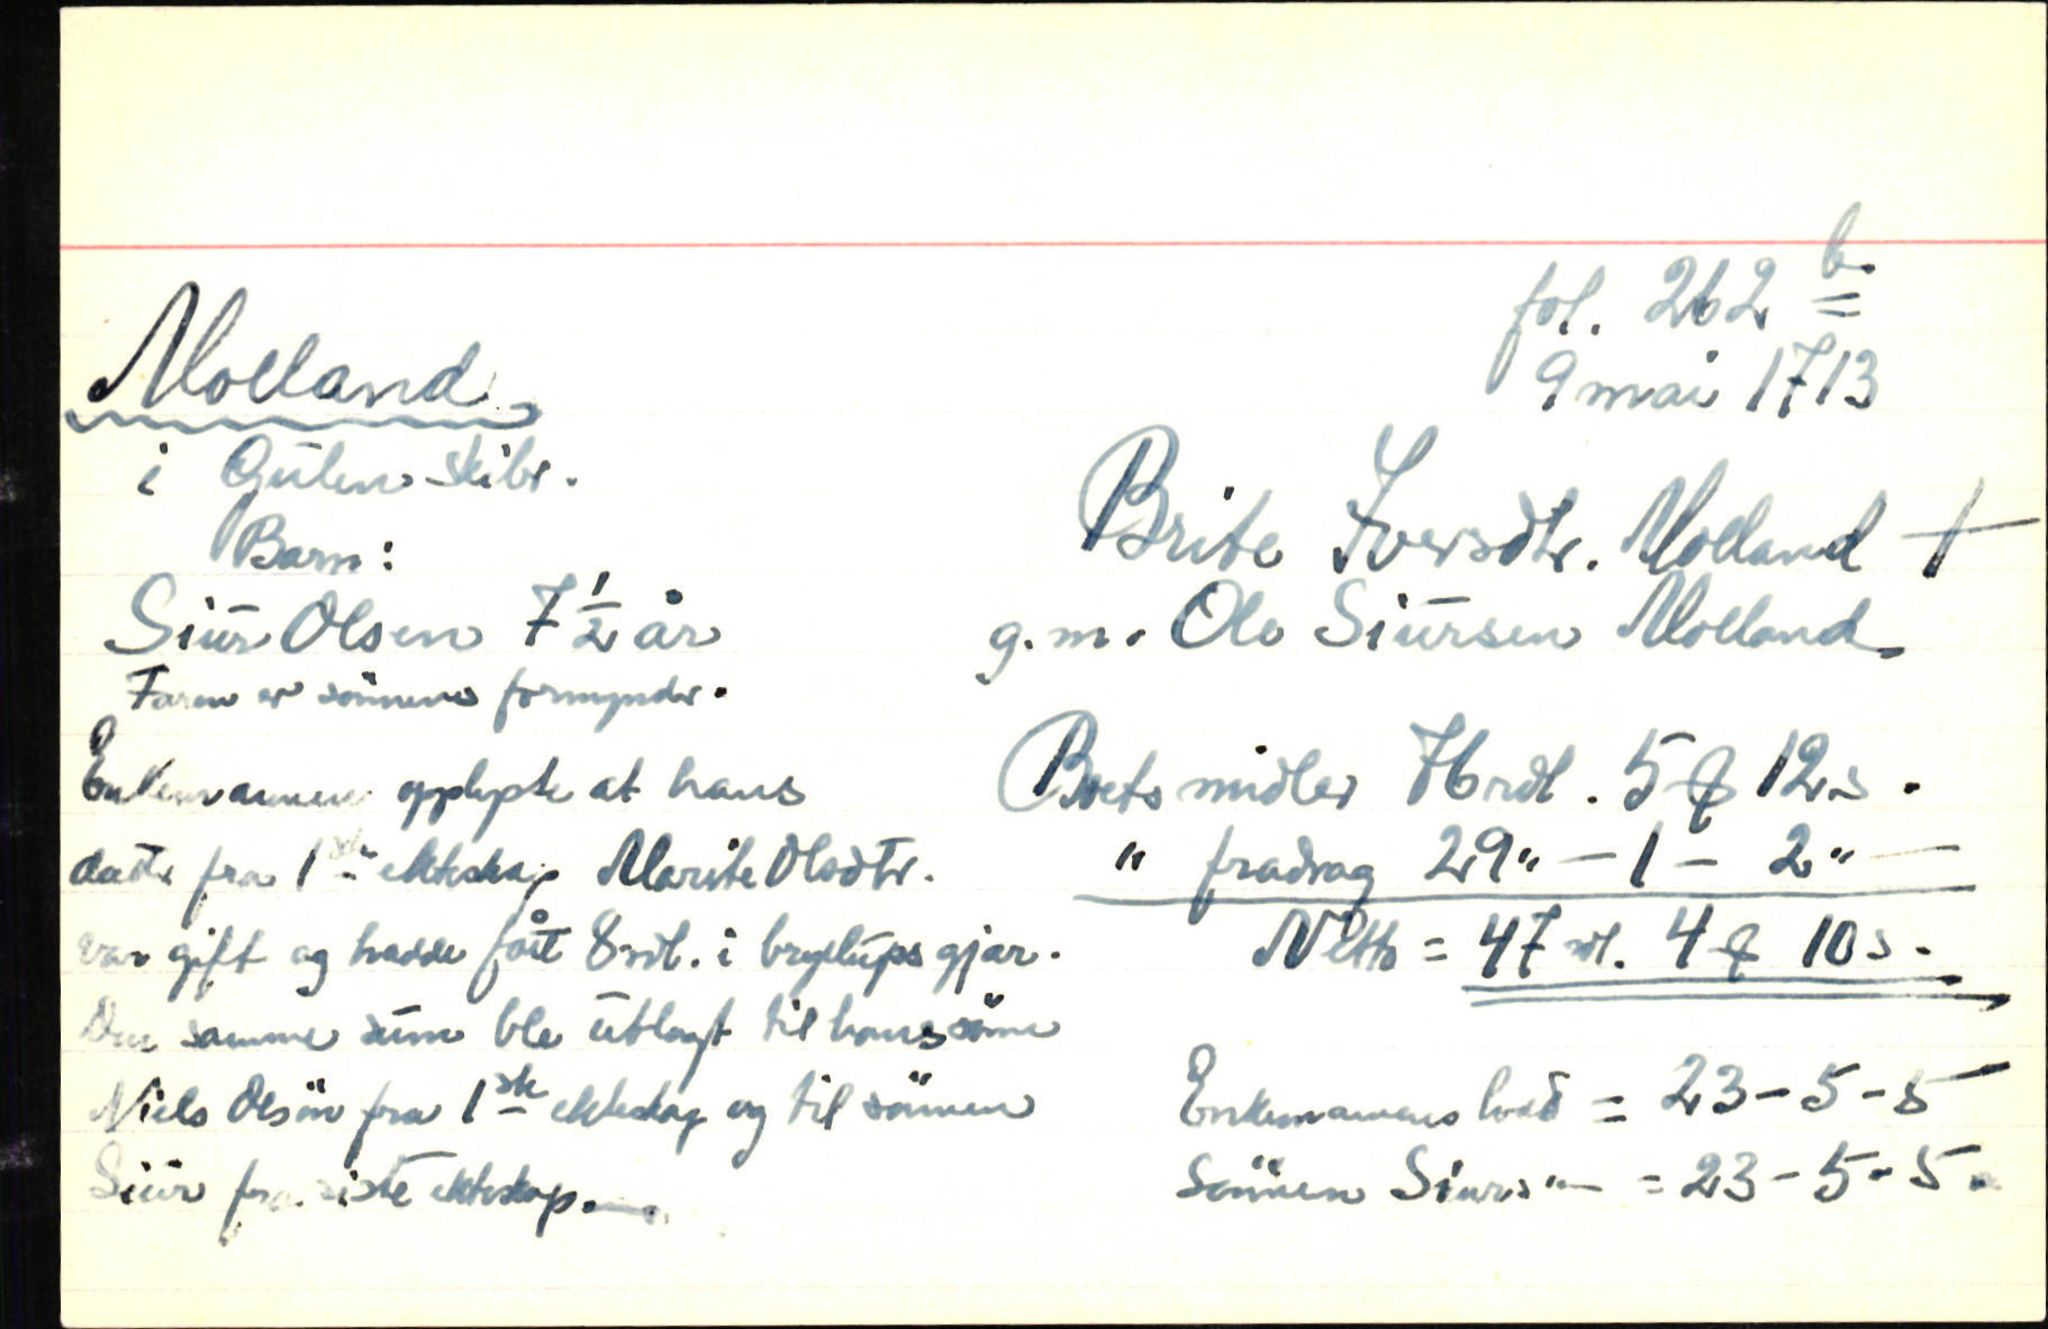 fol. 262 b.
9 mai 1713
Molland
i Gulen skibr.
Barn:
Siur Olsen 7 1/2 år
Faren er sönnens formynder.
Enkemannen opplyste at hans
dattr fra 1ste ekteskap Marite Olsdtr.
var gift og hadde fått 8 rdl. i bryllups gjær.
Den samme sum ble utlagt til hans sönn
Niels Olsön fra 1ste ekteskap og til sönnen
Siur fra siste ekteskap.
Brite Iversdtr. Molland †
g. m. Ole Siursen Molland
Boets midler 76 rdl. 5 ꝑ 12 s.
" fradrag 29 " — 1 — 2 " —
Netto = 47 rdl. 4 ꝑ 10 s.
Enkemannens lodd = 23 - 5 - 5
Sönnen Siurs " — = 23 - 5 - 5.